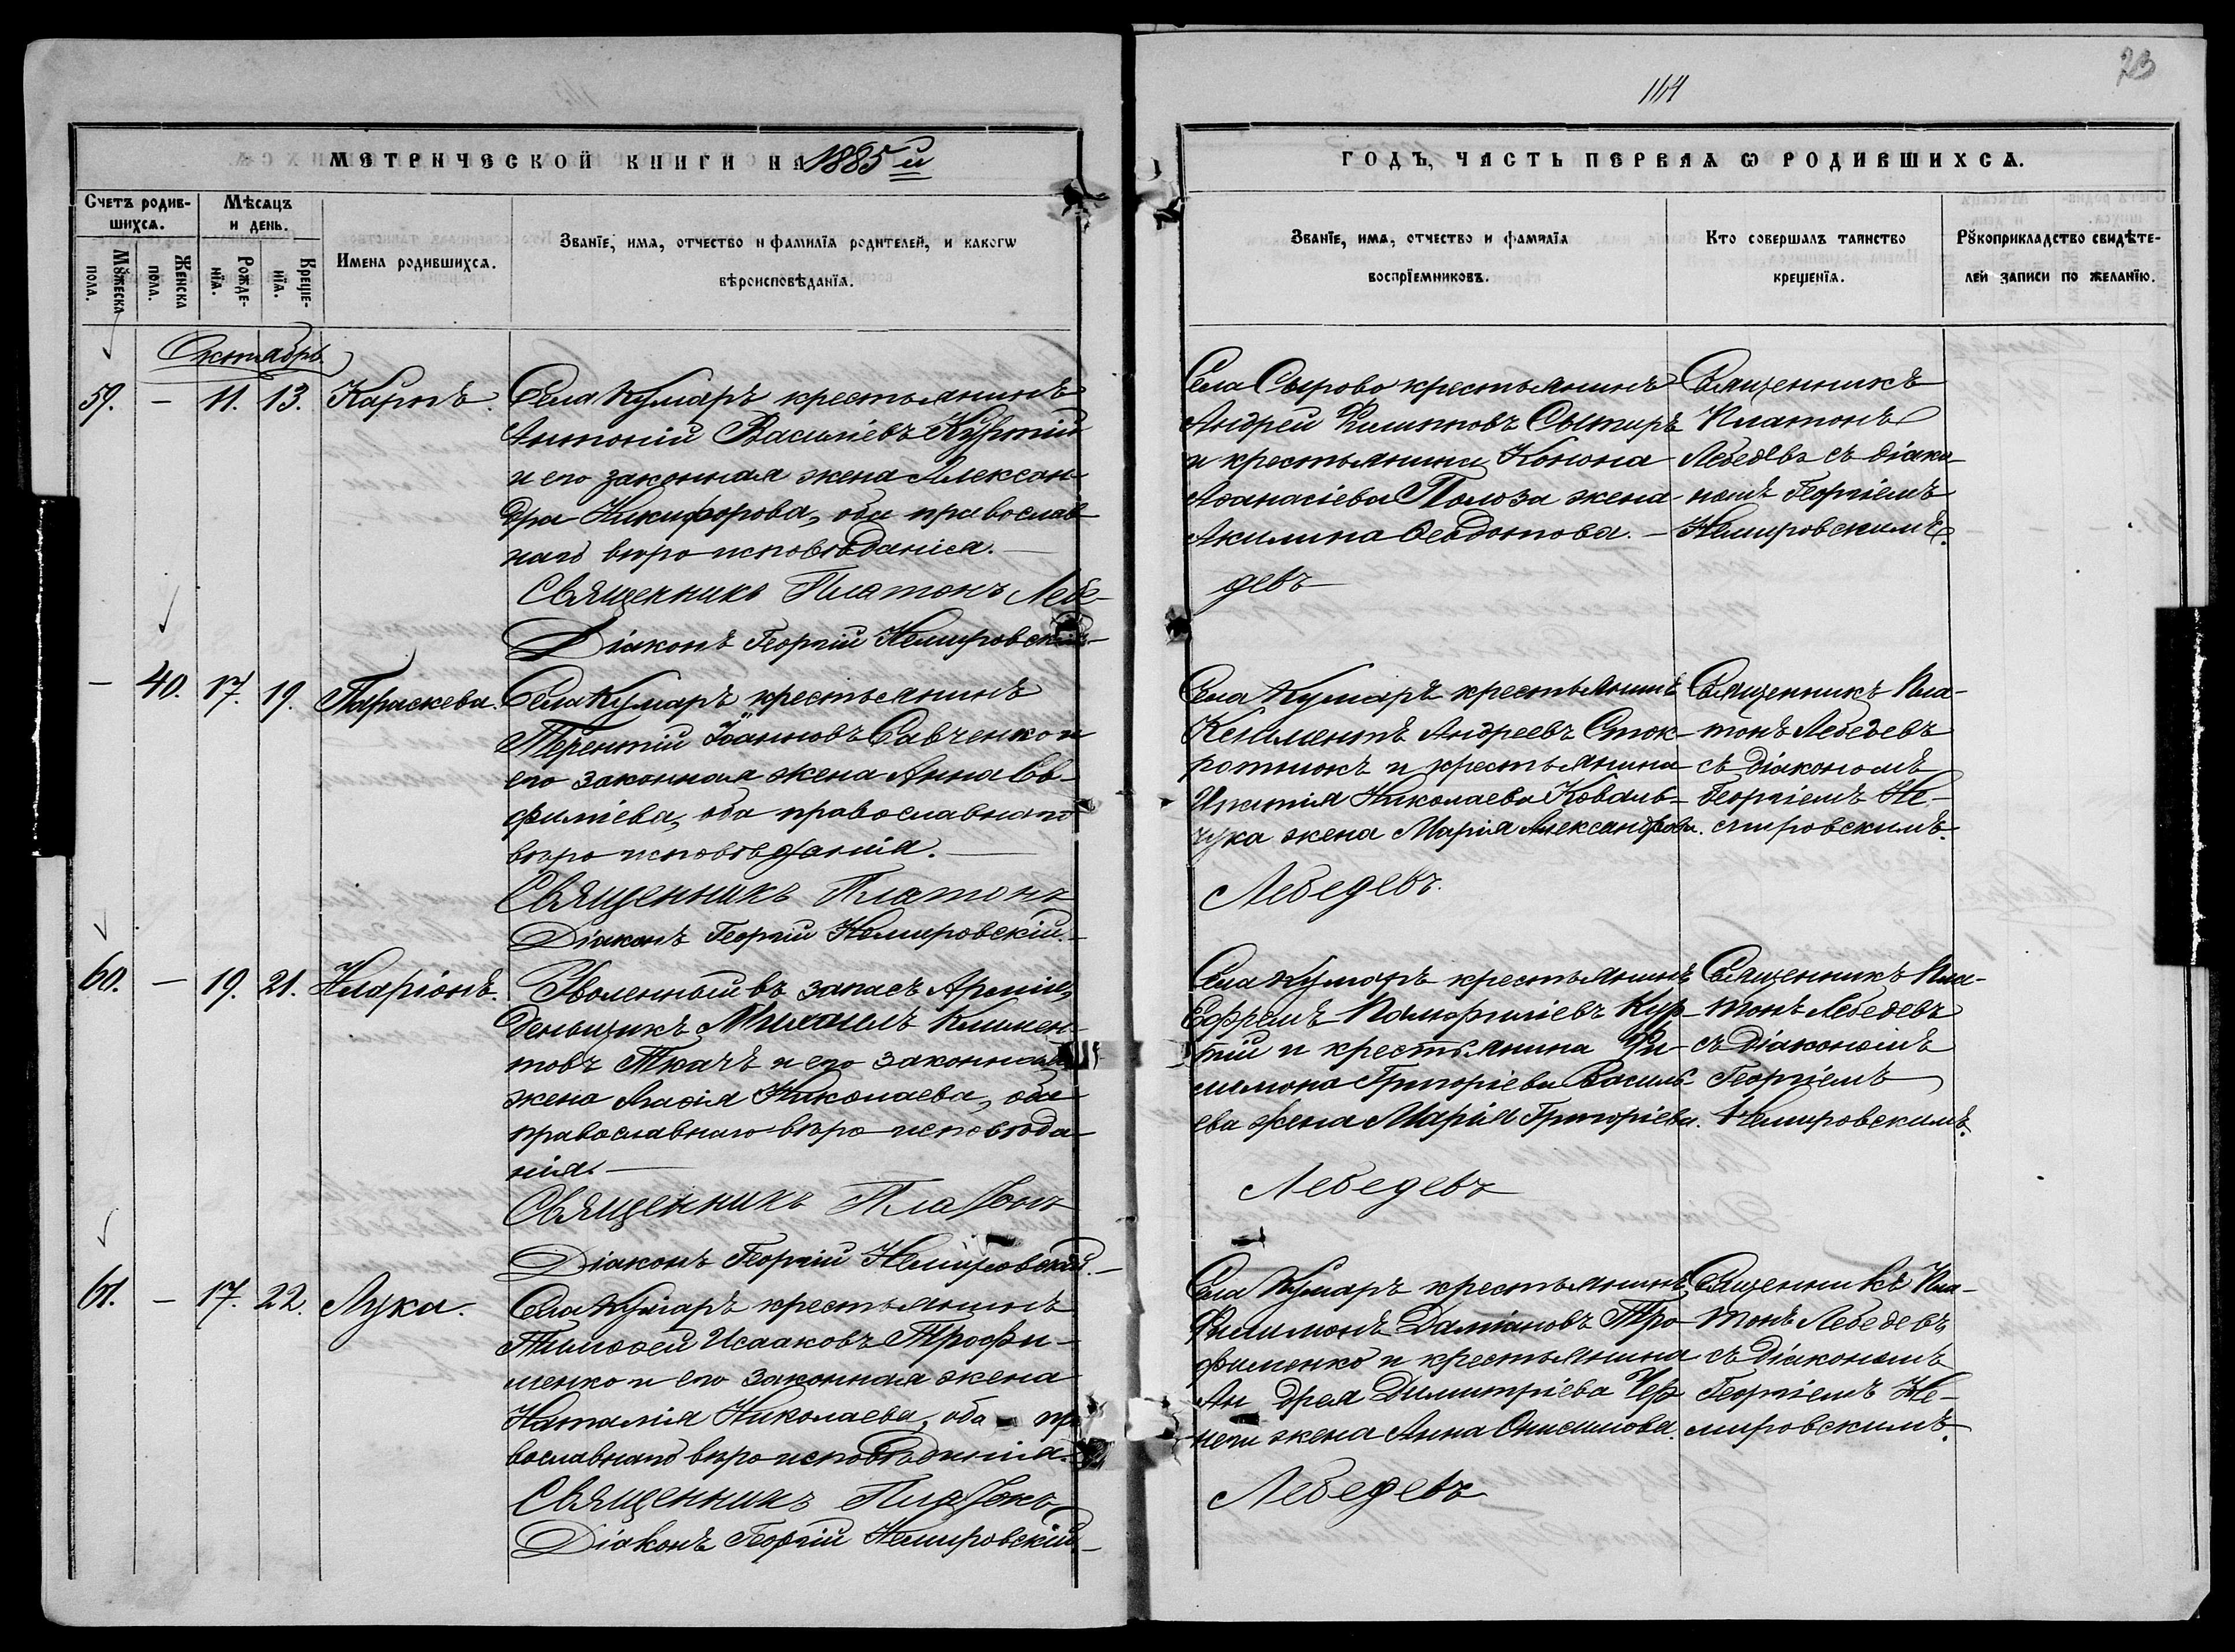 23
114
МЕТРИЧЕСКОЙ КНИГИ НА 1885й
ГОДЪ, ЧАСТЬ ПЕРВАЯ Ѡ РОДИВШИХСѦ.
Счетъ родив-
шихсѧ.
Мѣсѧцъ
и день.
Мꙋжеска
пола.
Женска
пола.
Рожде-
нїѧ.
Креще-
нїѧ.
Имена родившихсѧ.
Званїе, имѧ, отчество и фамилїѧ родителей, и какогѡ
вѣроисповѣданїѧ.
Званїе, имѧ, отчество и фамилїѧ
воспрїемниковъ.
Кто совершалъ таинство
крещенїѧ.
Рꙋкоприкладство свидѣте-
лей записи по желанїю.
Октябрь
59. — 11. 13. Карпъ.
Села Кумаръ крестьянинъ
Антоній Васильевъ Куртій
и его законная жена Алексан-
дра Никифорова, оба православ-
наго вѣроисповѣданія. —
Священникъ Платонъ Лебе-
девъ
Діаконъ Георгій Немировскій
Села Сырово крестьянинъ
Андрей Филипповъ Сытиръ
и крестьянина Конона
Аѳанасіева Полоза жена
Акилина Ѳеодотова. —
Священникъ
Платонъ
Лебедевъ съ діако-
номъ Георгіемъ
Немировскимъ.
— 40. 17. 19. Параскева.
Села Кумаръ крестьянинъ
Терентій Іоанновъ Савченко и
его законная жена Анна Ев-
филіева, оба православнаго
вѣроисповѣданія. —
Священникъ Платонъ
Лебедевъ.
Діаконъ Георгій Немировскій. —
Села Кумаръ крестьянинъ
Климентъ Андреевъ
и крестьянина
Николаева Коваль-
чука жена Марія Александрова.
Священникъ Пла-
тонъ Лебедевъ
съ Діакономъ
Георгіемъ Не-
мировскимъ.
60. — 19. 21. Иларіонъ.
Уволенный въ запасъ Арміи,
Деньщикъ Михаилъ Климен-
товъ Ткачъ и его законная
жена Марія Николаева, оба
православнаго вѣроисповѣда-
нія. —
Священникъ Платонъ
Лебедевъ
Діаконъ Георгій Немировскій. —
Села Кумаръ крестьянинъ
Ефремъ Памфиліевъ Кур-
тій и крестьянина Фи-
лимона Григоріева Василь-
ева жена Марія Григоріева.
Священникъ Пла-
тонъ Лебедевъ
съ Діакономъ
Георгіемъ
Немировскимъ.
61. — 17. 22. Лука.
Села Кумаръ крестьянинъ
Тимоѳей Исааковъ Трофи-
менко и его законная жена
Наталія Николаева, оба пра
вославнаго вѣроисповѣданія.
Священникъ Платонъ
Лебедевъ
Діаконъ Георгій Немировскій —
Села Кумаръ крестьянинъ
Филимонъ Даміановъ Тро-
фименко и крестьянина
Андрея Димитріева Чер
жена Анна Онисимова.
Священникъ Пла-
тонъ Лебедевъ
съ діакономъ
Георгіемъ Не-
мировскимъ.